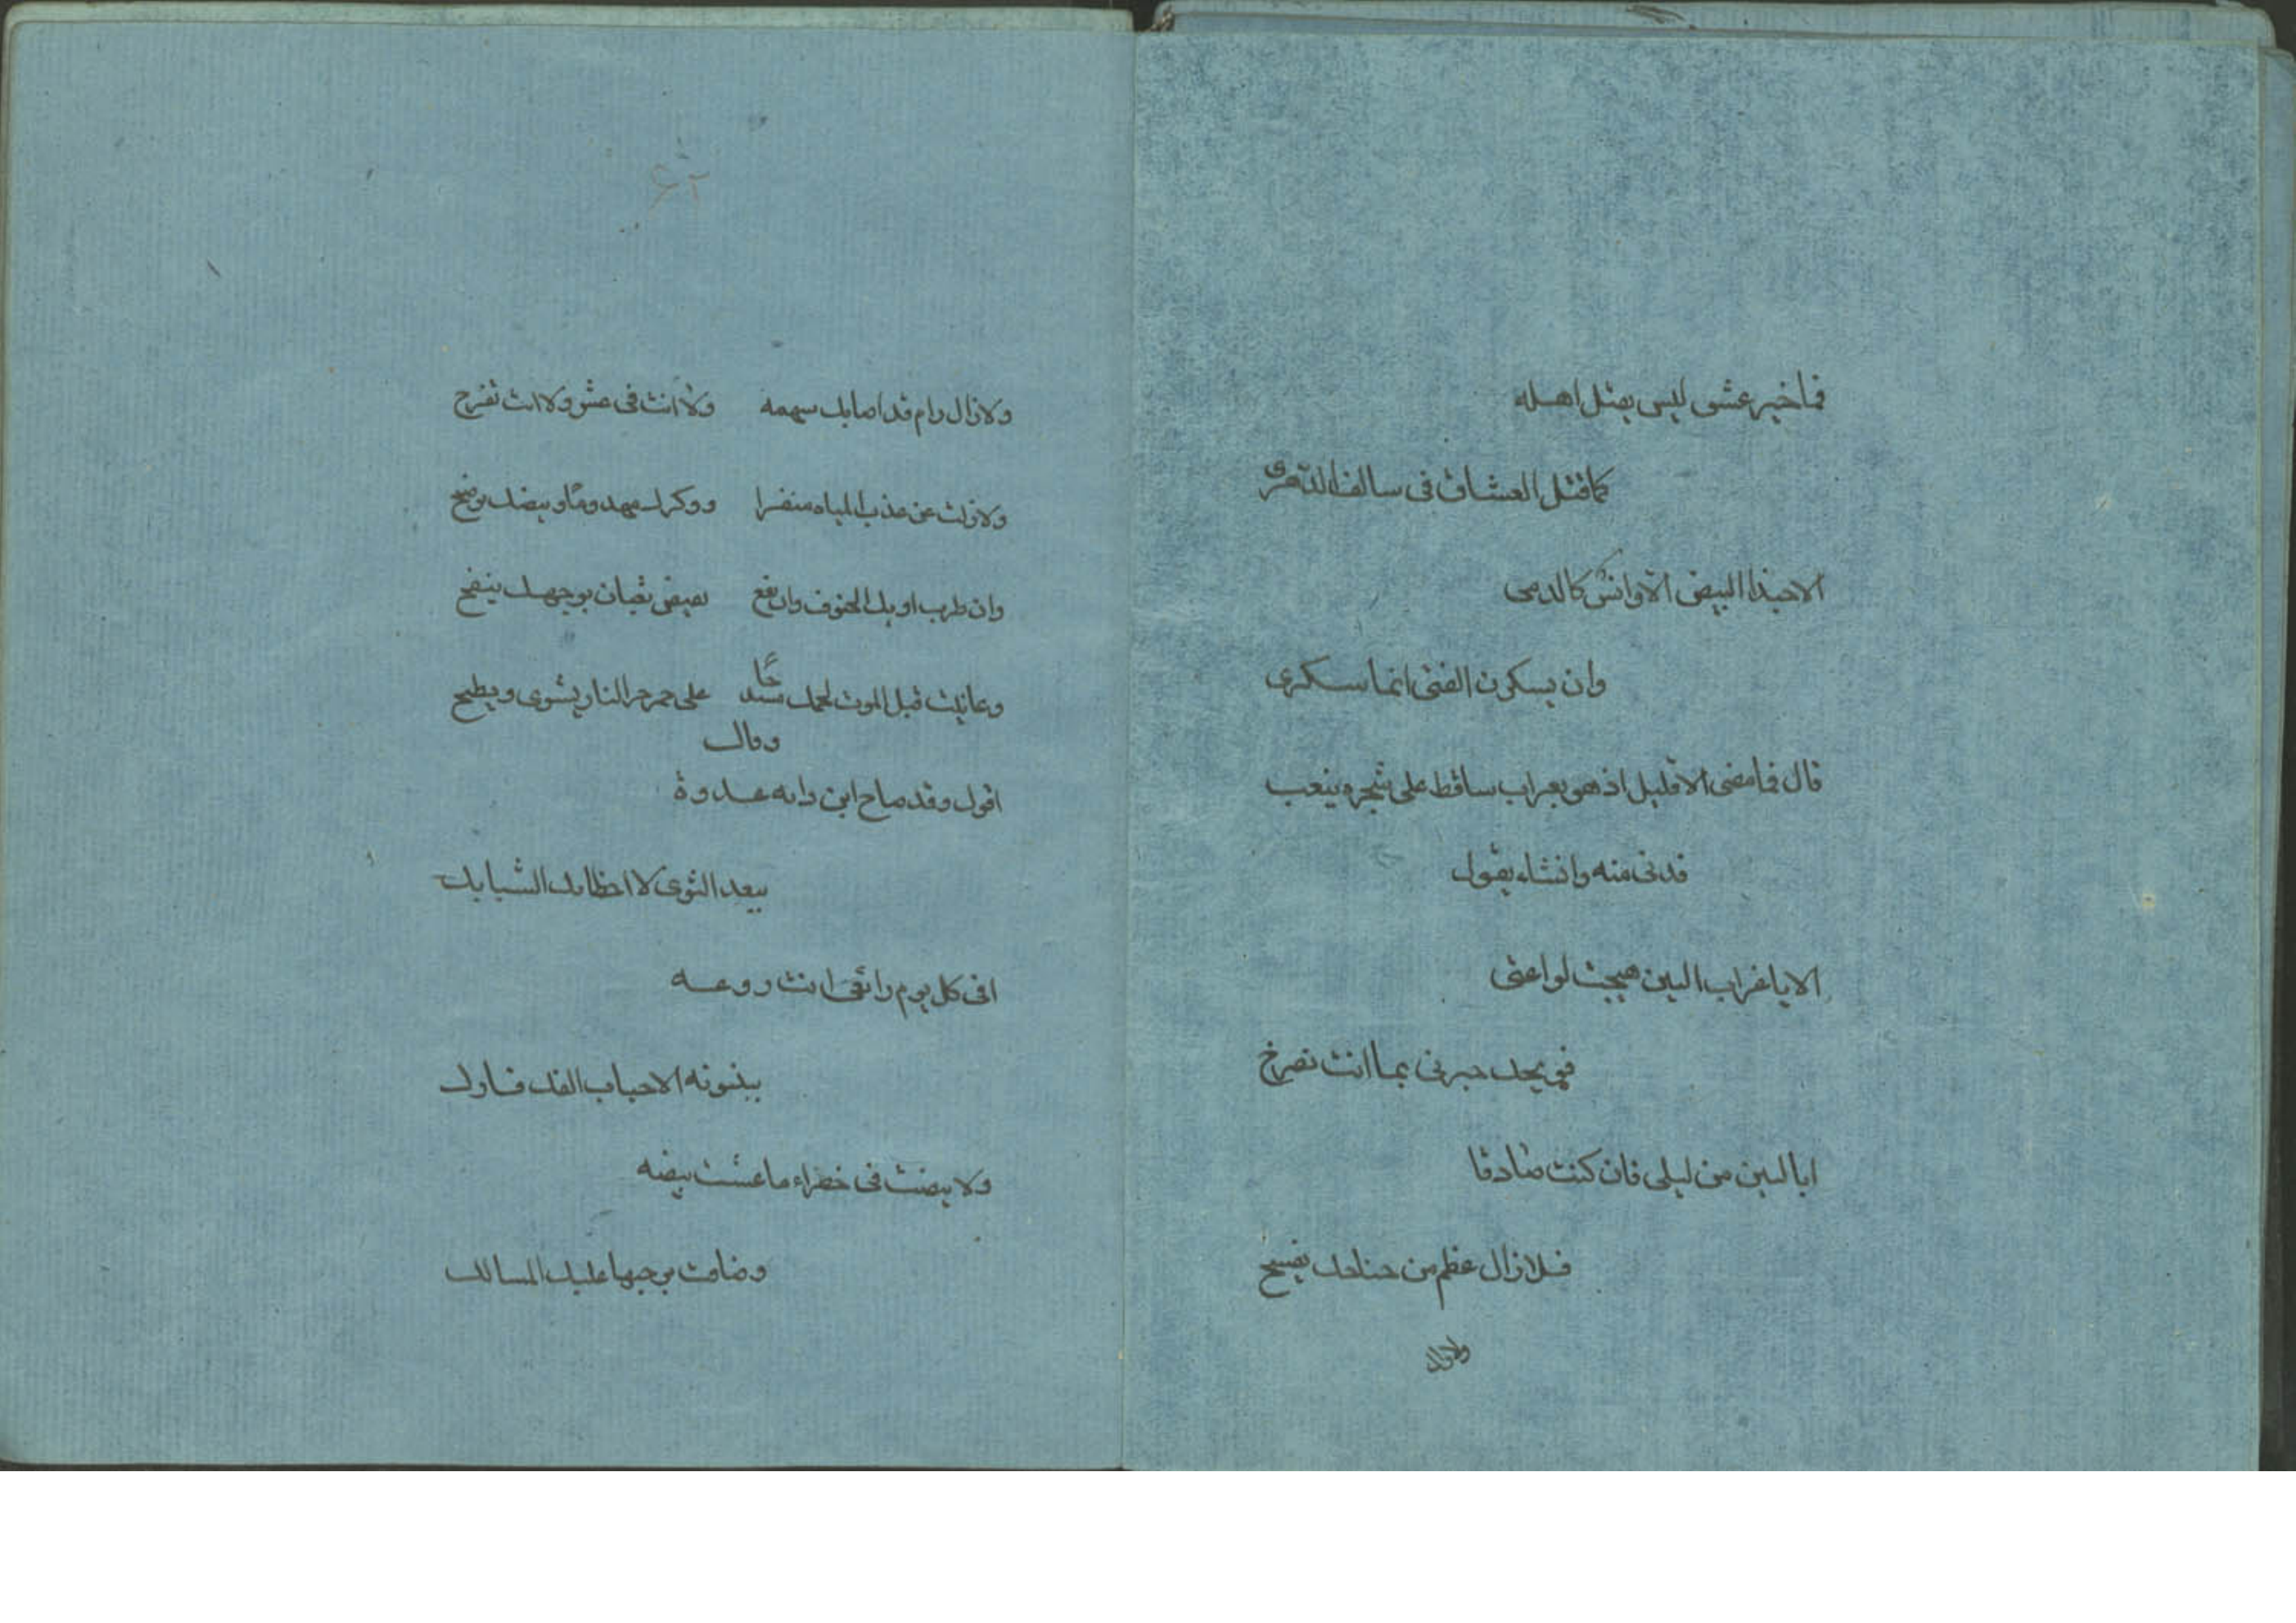 فما خير عشق ليس يقتل اهله
كما قتل العشاق في سالف الدهرى
الا حبذا البيض الاوانس كالدمى
وان يسكرن الفتى انما سكرى
قال فما مضى الا قليل اذ هو بعراب ساقط على شجره ينعب
فدنى منه وانشاء يقول
الا يا غراب البين هيجت لواعتى
فويحك خبرنى بما انت تصرخ
ابا لبين من ليلى فان كنت صادقا
فلا زال عظم من جناحك يفسخ
ولازال
٤٢
ولازال رام قد اصابك سهمه ولا انت فى عش ولا انت تفرح
ولازلت عن عذب المياه منفرا ووكرك مهدوما وبيضك يرضح
وان طرب اوبك الحتوف وان تقع تقيض ثعبان بوجهك ينفخ
وعاينت قبل الموت لحمك مشدخا على حر جمر النار يشوى ويطبخ
وقال
اقول وقد صاح ابن دايه عدوة
ببعد النوى لا اخطاتك الشبايك
افى كل يوم رائعى انت روعه
ببينونه الاحباب الفك فارك
ولا بيضت فى خضراء ما عشت بيضه
وضاقت برحبها عليك المسالك